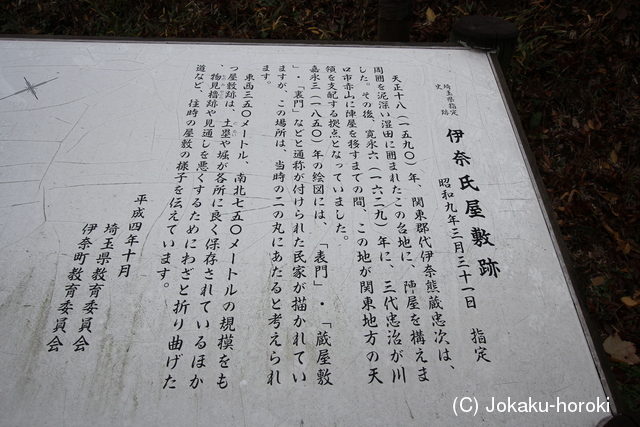 埼玉県指定
史跡
伊奈氏屋敷跡
昭和九年三月三十一日 指定
天正十八(一五九〇)年、関東郡代伊奈熊蔵忠次は、
周囲を泥深い湿田に囲まれたこの台地に、陣屋を構えま
した。その後、寛永六(一六二九)年に、三代忠治が川
口市赤山に陣屋を移すまでの間、この地が関東地方の天
領を支配する拠点となっていました。
嘉永三(一八五〇)年の絵図には、「表門」・「蔵屋敷
」・「裏門」などと通称が付けられた民家が描かれてい
ますが、この場所は、当時の二の丸にあたると考えられ
ます。
東西三五〇メートル、南北七五〇メートルの規模をも
つ屋敷跡は、土塁や堀が各所に良く保存されているほか
、物見櫓跡や見通しを悪くするためにわざと折り曲げた
道など、往時の屋敷の様子を伝えています。
平成四年十月
埼玉県教育委員会
伊奈町教育委員会
(C) Jokaku-horoki